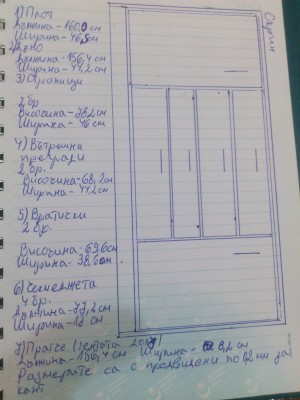 1) Плот
Дължина - 160,0 см
Ширина - 46,5 см
2) Дъно
Дължина - 156,4 см
Ширина - 44,2 см
3) Страници
2 бр.
Височина - 78,2 см
Ширина - 46 см
4) Вътрешни
прегради
2 бр.
Височина - 68,2 см
Ширина - 44,2 см
5) Вратички
2 бр.
Височина - 69,6 см
Ширина - 38,6 см
6) Чекмеджета
4 бр.
Дължина - 77,2 см
Ширина - 17 см
7) Пратче
Дължина - 156,4 см Ширина - 8,2 см
Размерите са с предвидени по 0,2 мм за
кант